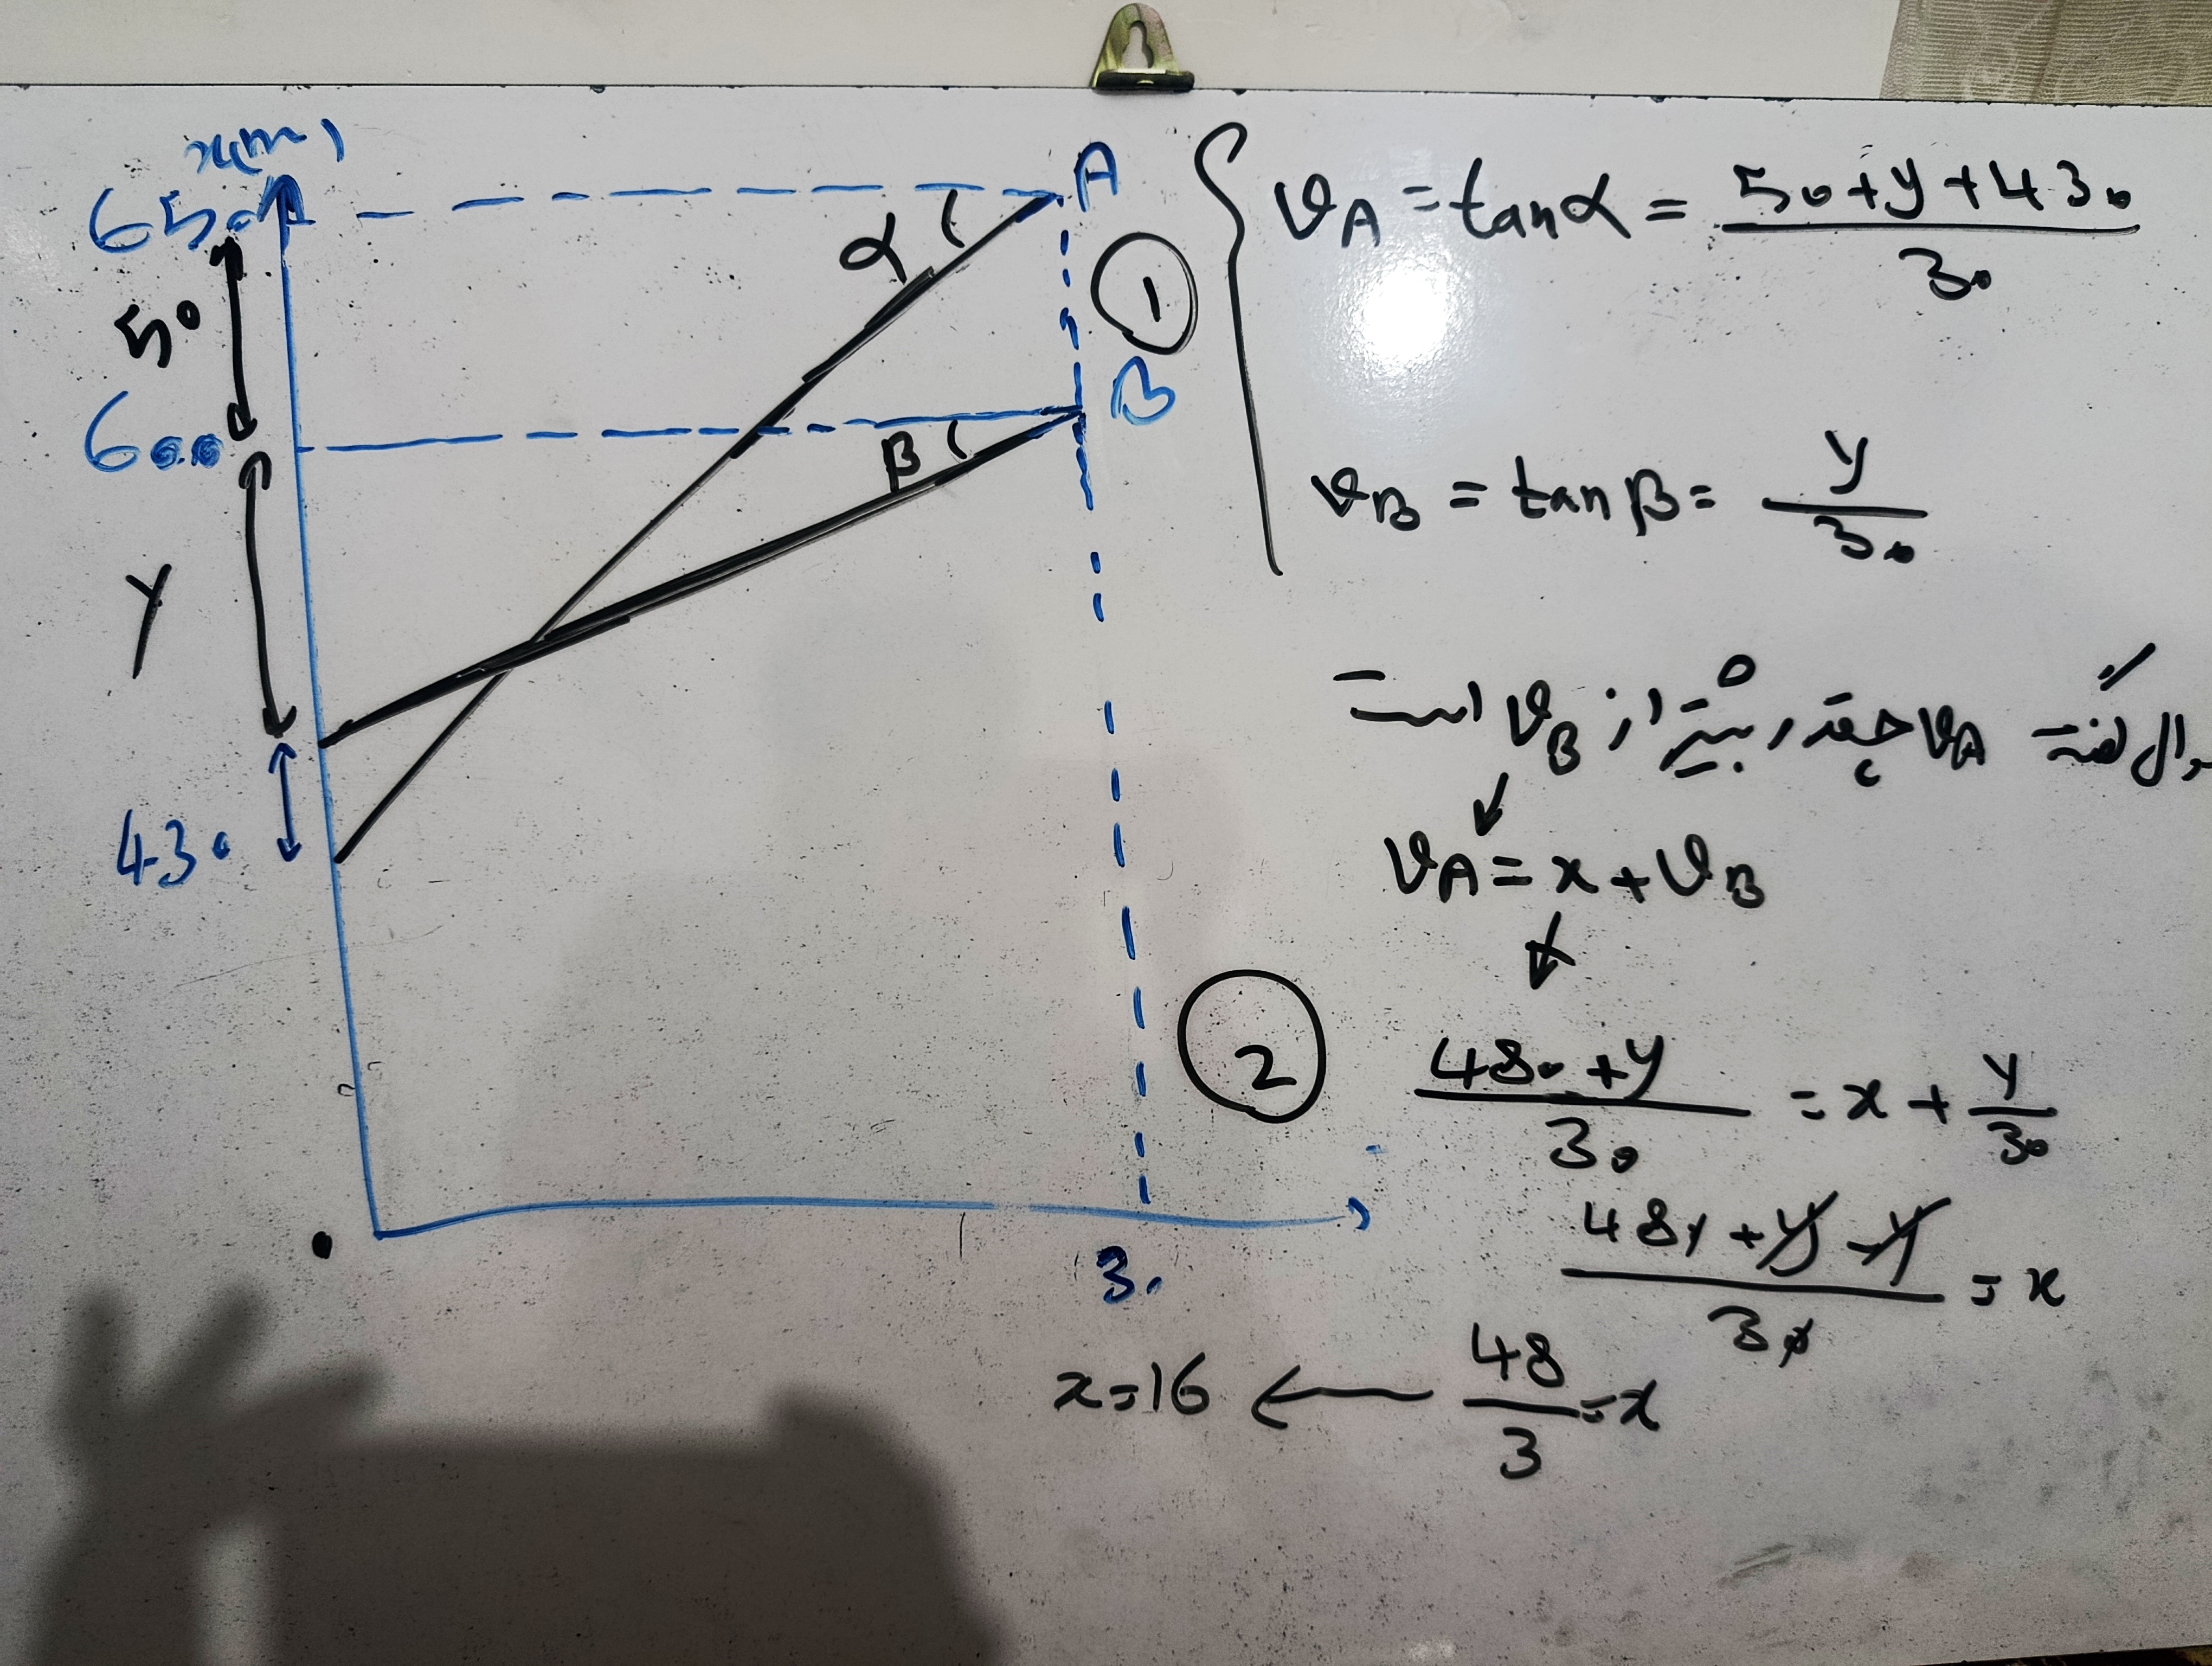 x(m)
650
50
600
y
430
α
A
β
B
30
①
v_A = tanα = (50+y+430)/30
v_B = tanβ = y/30
سوال گفته v_A چقدر بیشتر از v_B است
v_A = x + v_B
②
(480+y)/30 = x + y/30
(480+y-y)/30 = x
48/3 = x
x=16